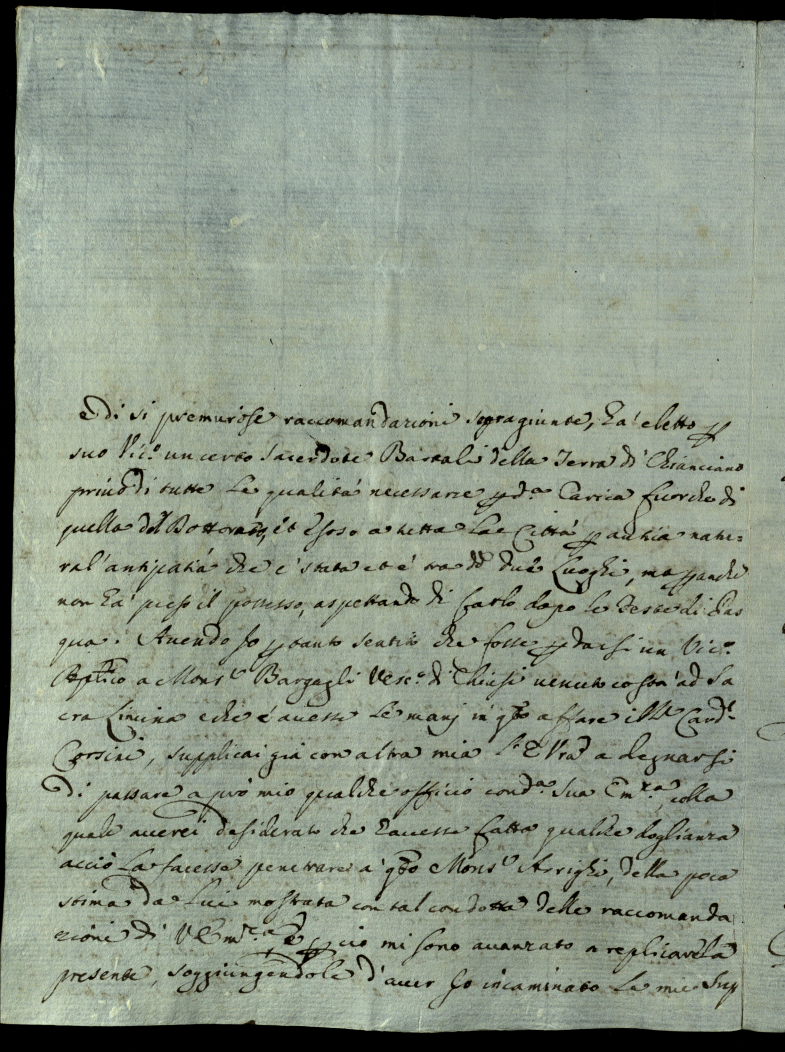 e di si premurose raccomandazioni sopragiunte, ha' eletto p
suo Vic.º un certo Sacerdote Bartali della Terra di Chianciano
privo di tutte le qualità necessarie p d.ª Carica fuorche di
quella del Dottorato, et Esoso a tutta la Città p antica natu=
ral' antipatia che c'è stata et è tra dd. due Luoghi, ma p anche
non ha' preso il possesso, aspettando di farlo dopo le Feste di Pas
qua. Avendo Io p tanto sentito che fosse p darsi un Vic.º
Aplico a Mons.r Bargagli Vesc.º di Chiusi venuto costà ad Sa
cra Limina e che è avesse le mani in qsto affare il Card.l
Corsini, supplicai già con altra mia l' E Vra a degnarsi
di passare a prò mio qualche officio con d.ª Sua Em.za, colla
quale averei desiderato che havesse fatta qualche doglianza
acciò la facesse penetrare a' qsto Mons.r Arrighi, della poca
stima da lui mostrata con tal condotta delle raccomanda
zioni di V Em.za e p ciò mi sono avanzato a replicarela
presente, soggiungendole d'aver Io incaminato le mie Sup